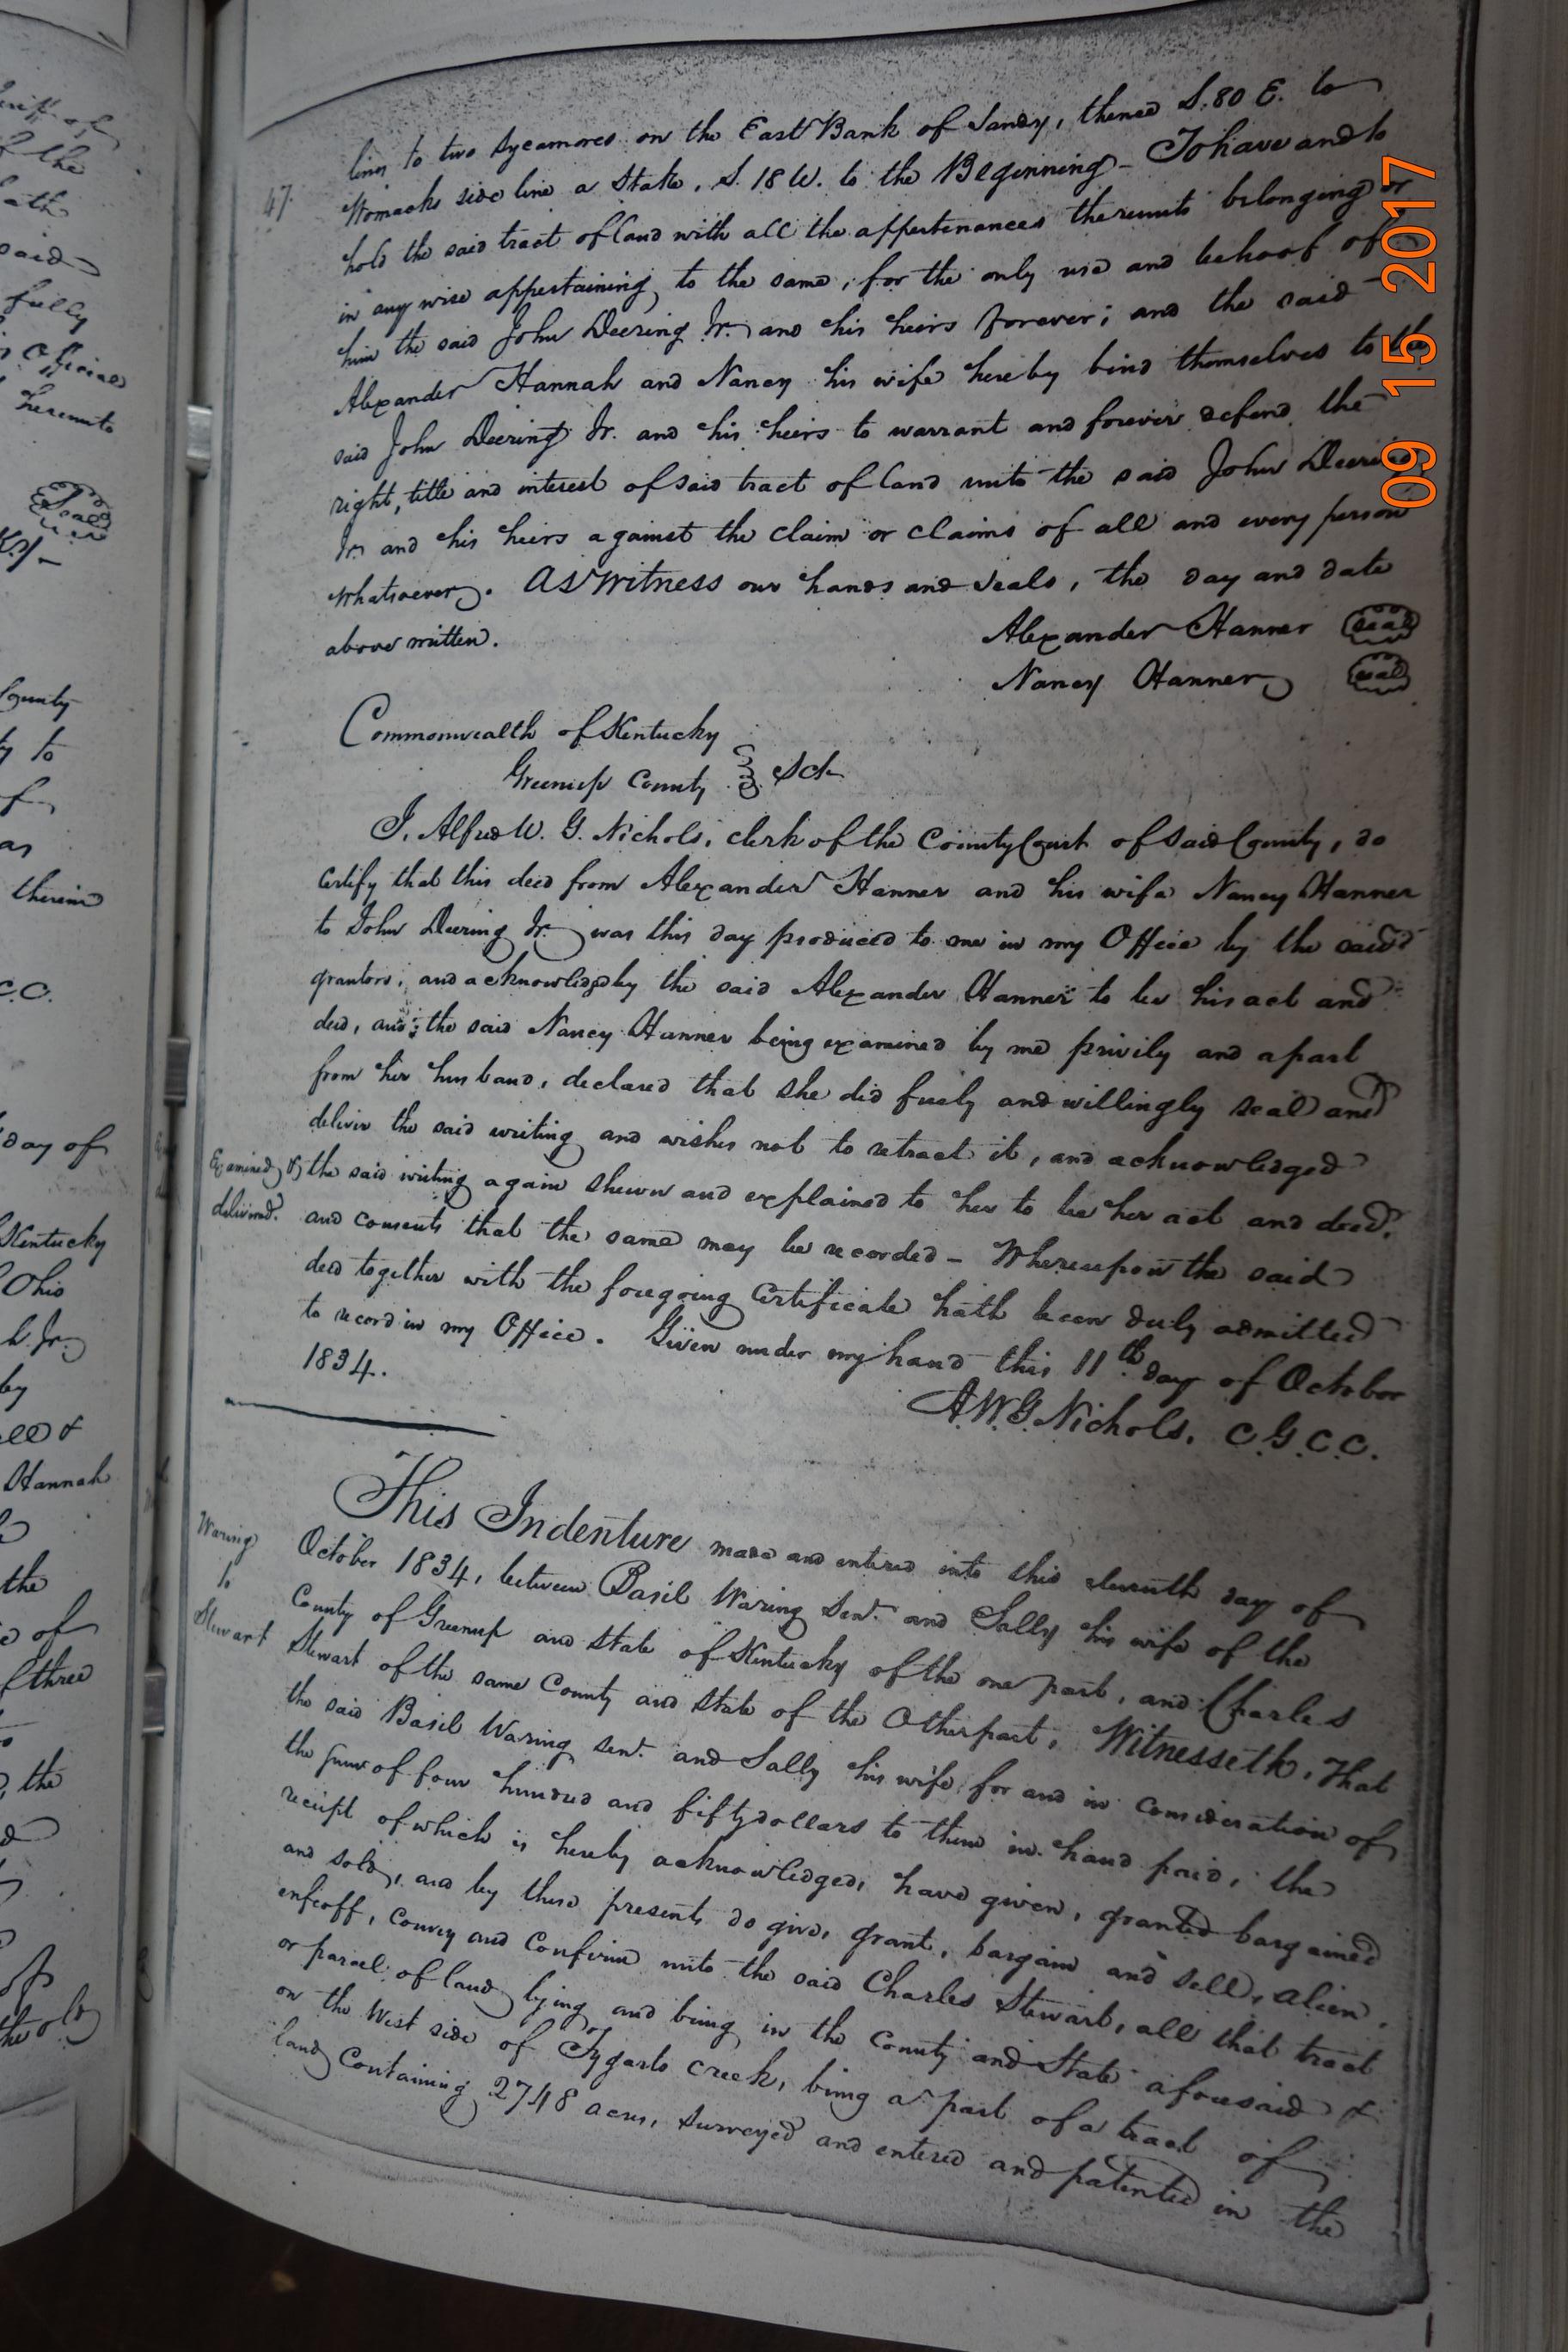 47.
line to two Sycamores on the East Bank of Sandy, thence S. 80 E. to
Womacks side line a Stake, S. 18 W. to the Beginning – To have and to
hold the said tract of land with all the appertenances thereunto belonging or
in any wise appertaining, to the same, for the only use and behoof of
him the said John Deering Jr. and his heirs forever; and the said
Alexander Hannah and Nancy his wife hereby bind themselves to the
said John Deering Jr. and his heirs to warrant and forever defend the
right, title and interest of said tract of land unto the said John Deering
Jr. and his heirs against the claim or claims of all and every person
whatsoever. As Witness our hands and seals, the day and date
above written.
Alexander Hanner seal
Nancy Hanner seal
Commonwealth of Kentucky
Greenup County Sct
I, Alfred W. G. Nichols, clerk of the County Court of said County, do
certify that this deed from Alexander Hanner and his wife Nancy Hanner
to John Deering Jr. was this day produced to me in my Office by the said
grantors, and acknowledged by the said Alexander Hanner to be his act and
deed, and the said Nancy Hanner being examined by me privily and apart
from her husband, declared that she did freely and willingly seal and
deliver the said writing and wishes not to retract it, and acknowledged
Examined &
delivered.
the said writing again shewn and explained to her to be her act and deed,
and consents that the same may be recorded – Whereupon the said
deed together with the foregoing Certificate hath been duly admitted
to record in my Office. Given under my hand this 11th day of October
1834.
A.W.G. Nichols, C.G.C.C.
Waring
to
Stewart
This Indenture made and entered into this eleventh day of
October 1834, between Basil Waring Senr. and Sally his wife of the
County of Greenup and State of Kentucky of the one part, and Charles
Stewart of the same County and State of the Other part, Witnesseth, That
the said Basil Waring Senr. and Sally his wife, for and in consideration of
the sum of four hundred and fifty dollars to them in hand paid, the
receipt of which is hereby acknowledged, have given, granted bargained
and sold, and by these presents do give, grant, bargain and sell, alien,
enfeoff, convey and confirm unto the said Charles Stewart, all that tract
or parcel of land lying and being in the County and State aforesaid &
on the West side of Tygarts creek, being a part of a tract of
land containing 2748 acres, surveyed and entered and patented in the
09 15 2017
said
fully
Official
hereunto
Seal
County
to
therein
C.C.
day of
Kentucky
Ohio
Jr.
by
Hannah
the
of
three
the